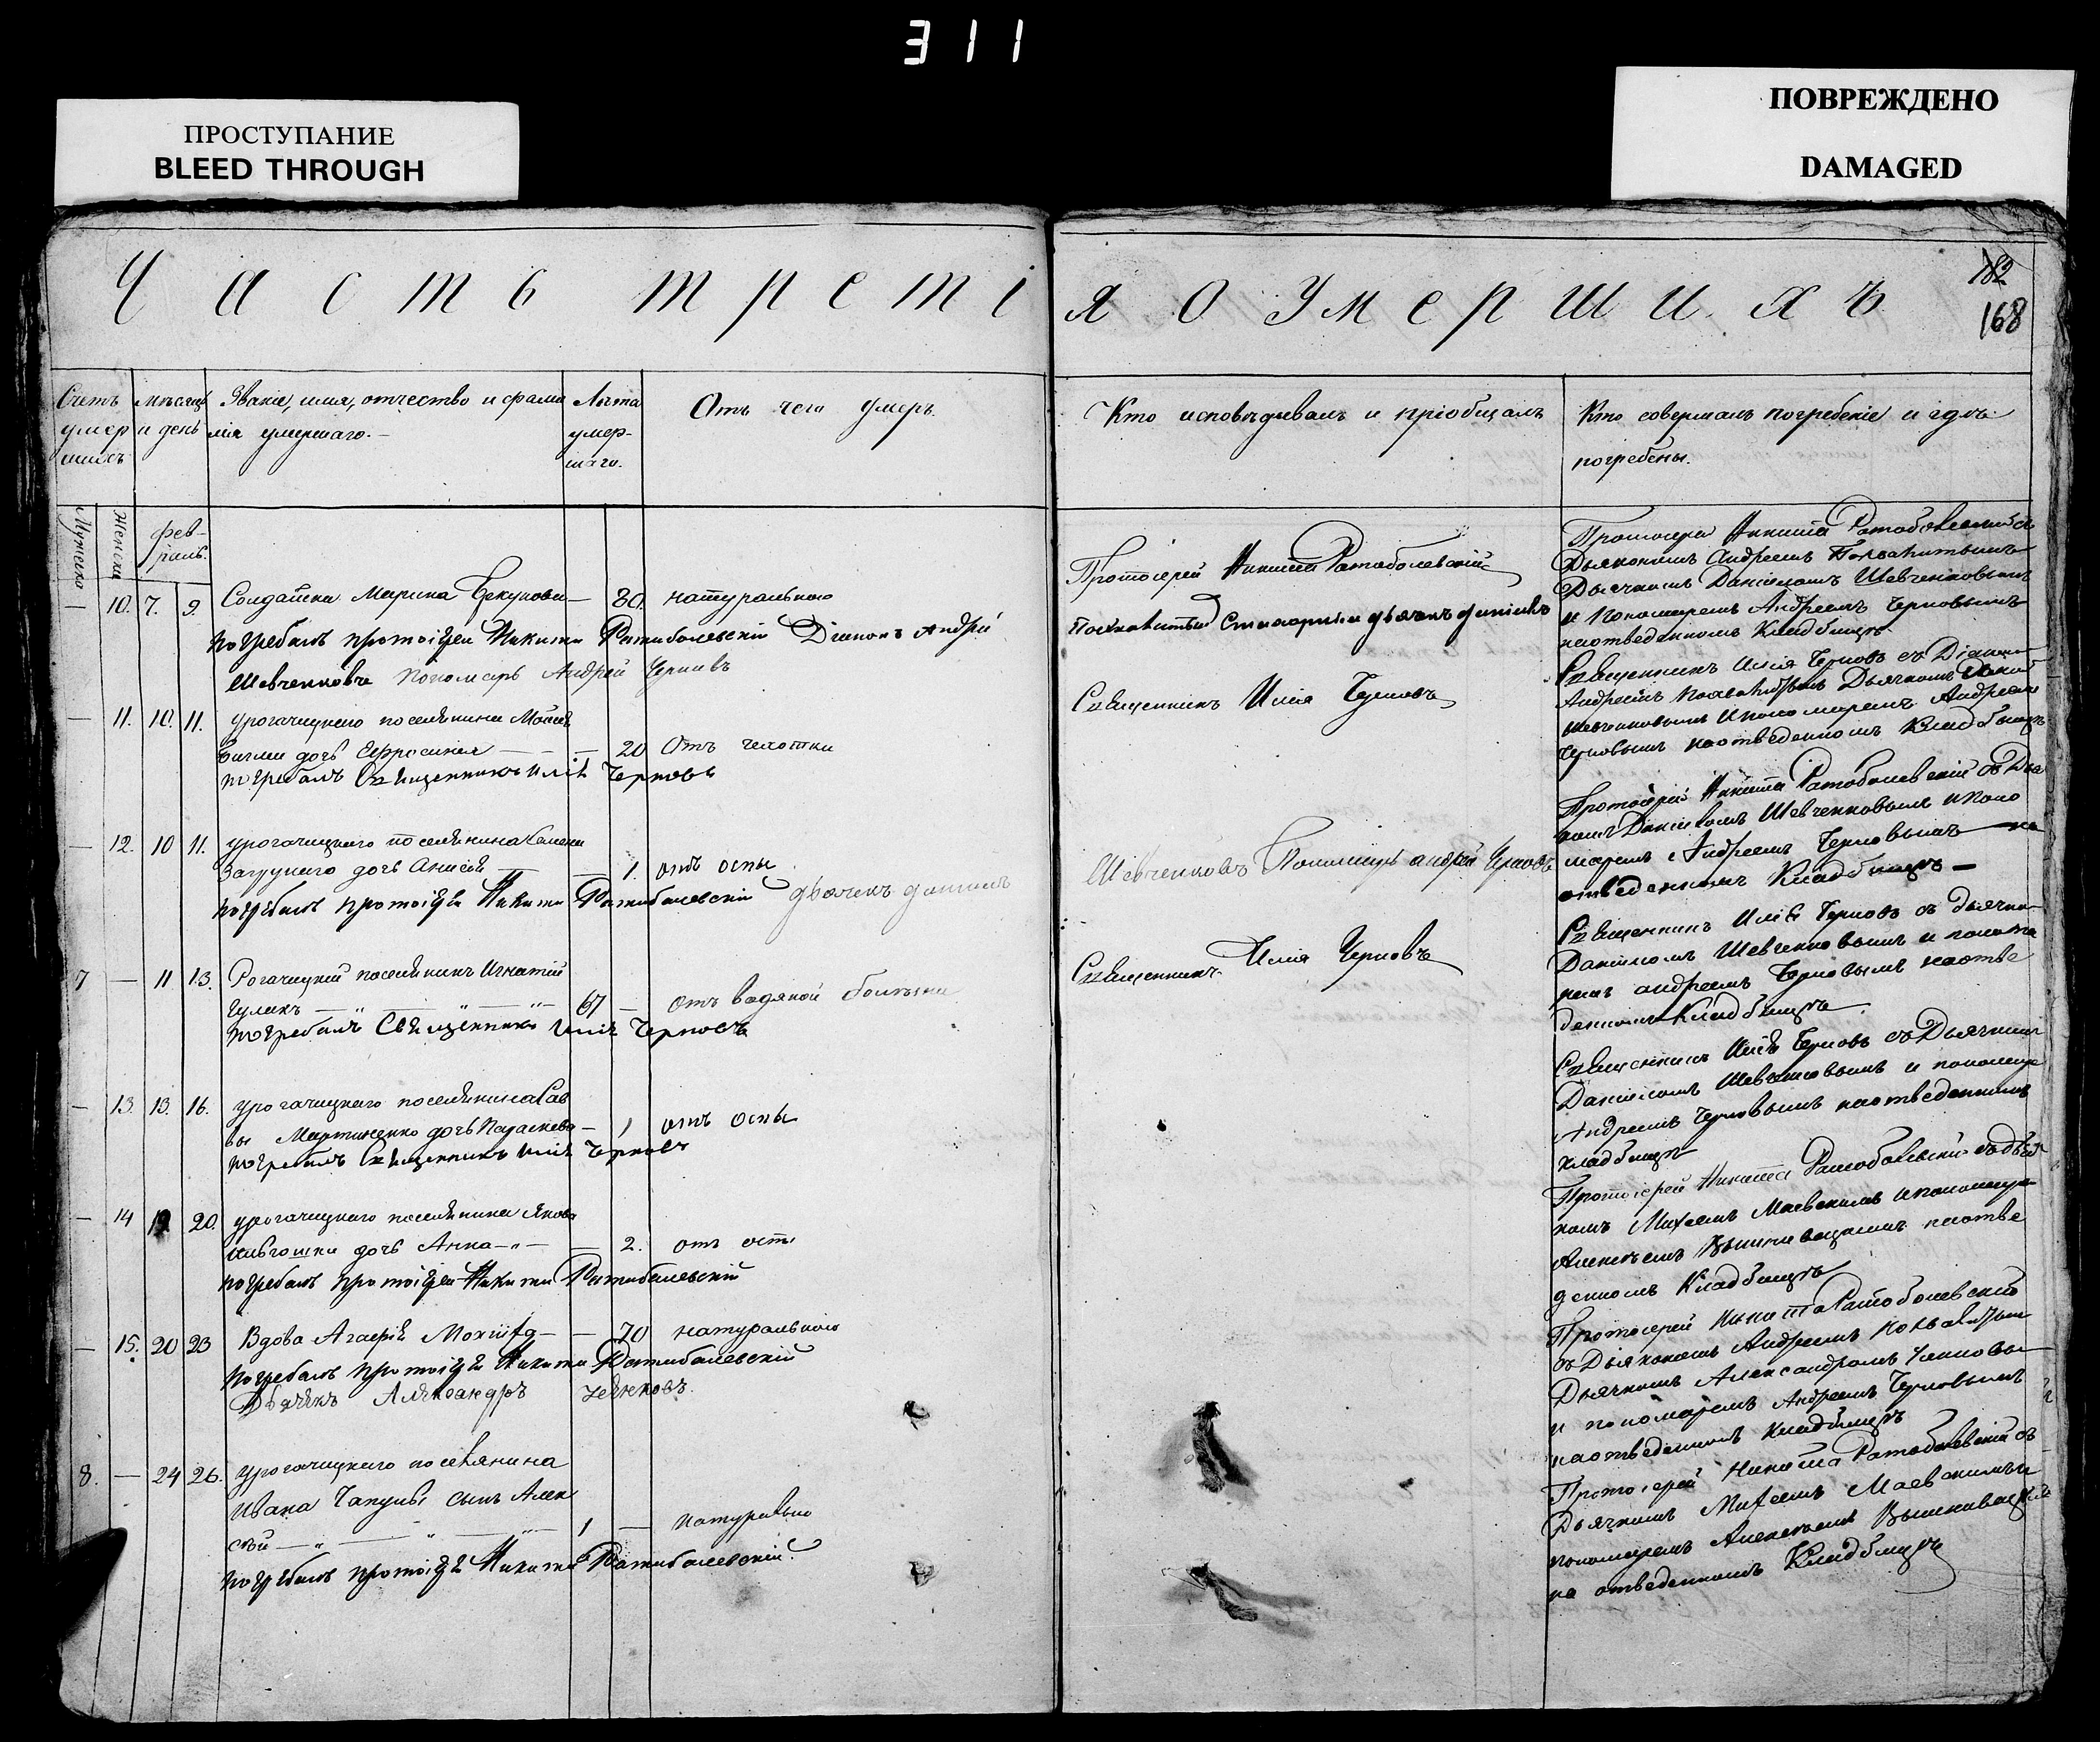 311
ПРОСТУПАНИЕ
BLEED THROUGH
ПОВРЕЖДЕНО
DAMAGED
Часть третія о умершихъ
182
168
Счетъ умершихъ
Мѣсяцъ и день
Званіе, имя, отчество и фамилія умершаго.
Лѣта умершаго.
Отъ чего умеръ.
Кто исповѣдывалъ и пріобщалъ
Кто совершалъ погребеніе и гдѣ погребены.
Мужеска
Женска
Февраль.
— 10. 7. 9. Солдатка Марина — 80. натурально
погребалъ протоіерей Никита Ратиболевскій Діаконъ Андрей
Шевченковъ Пономарь Андрей Черновъ
Протоіерей Никита Ратоболевскій
Протоіерей Никита Ратоболевскій съ
Дьякономъ Андреемъ
Дьячкомъ Даниломъ Шевченковымъ
и Пономаремъ Андреемъ Черновымъ
на отведенномъ Кладбищѣ
— 11. 10. 11. урогачицкаго поселянина
дочь Ефросинія — 20 Отъ чахотки
погребалъ Священникъ Илія Черновъ
Священникъ Илія Черновъ
Священникъ Илія Черновъ съ Діакономъ
Андреемъ Дьячкомъ
Шевченковымъ и пономаремъ Андреемъ
Черновымъ на отведенномъ Кладбищѣ
— 12. 10 11. урогачицкаго поселянина
дочь Анисія — 1. отъ оспы
погребалъ протоіерей Никита Ратиболевскій дьячекъ Даниилъ
Шевченковъ Пономарь Андрей Черновъ
Протоіерей Никита Ратоболевскій съ Дья
комъ Даниломъ Шевченковымъ и поно
маремъ Андреемъ Черновымъ на
отведенномъ Кладбищѣ —
7 — 11 13. Рогачицкій поселянинъ Игнатій
Гулакъ — 67 — отъ водяной болѣзни
погребалъ Священникъ Илія Черновъ
Священникъ Илія Черновъ
Священникъ Илія Черновъ съ дьячко
Даниломъ Шевченковымъ и понома
ремъ Андреемъ Черновымъ на отве
денномъ Кладбищѣ
— 13. 13. 16. урогачицкаго поселянина Сав
вы Мартиненко дочь Параскева — 1 отъ оспы
погребалъ Священникъ Илія Черновъ
Священникъ Илія Черновъ съ Дьячкомъ
Даниломъ Шевченковымъ и пономаре
Андреемъ Черновымъ на отведенномъ
кладбищѣ
— 14 19 20. урогачицкаго поселянина Якова
дочь Анна — 2. отъ оспы
погребалъ протоіерей Никита Ратибалевскій
Протоіерей Никита Ратоболевскій съ дьяч
комъ Михаемъ Маевскимъ и пономаре
Алексѣемъ на отве
денномъ Кладбищѣ
— 15. 20 23 Вдова Агафія — 70 натурально
погребалъ протоіерей Никита Ратибалевскій
Дьячекъ Александръ
Протоіерей Никита Ратоболевскій
съ Діякономъ Андреемъ
Дьячкомъ Александромъ
и пономаремъ Андреемъ Черновымъ
на отведенномъ кладбищѣ
8. — 24 26. урогачицкаго поселянина
Ивана сынъ Алек
сѣй — 1 — натурально
погребалъ протоіерей Никита Ратибалевскій.
Протоіерей Никита Ратоболевскій съ
Дьячкомъ Михаемъ Маевскимъ и
пономаремъ Алексѣемъ
на отведенномъ Кладбищѣ